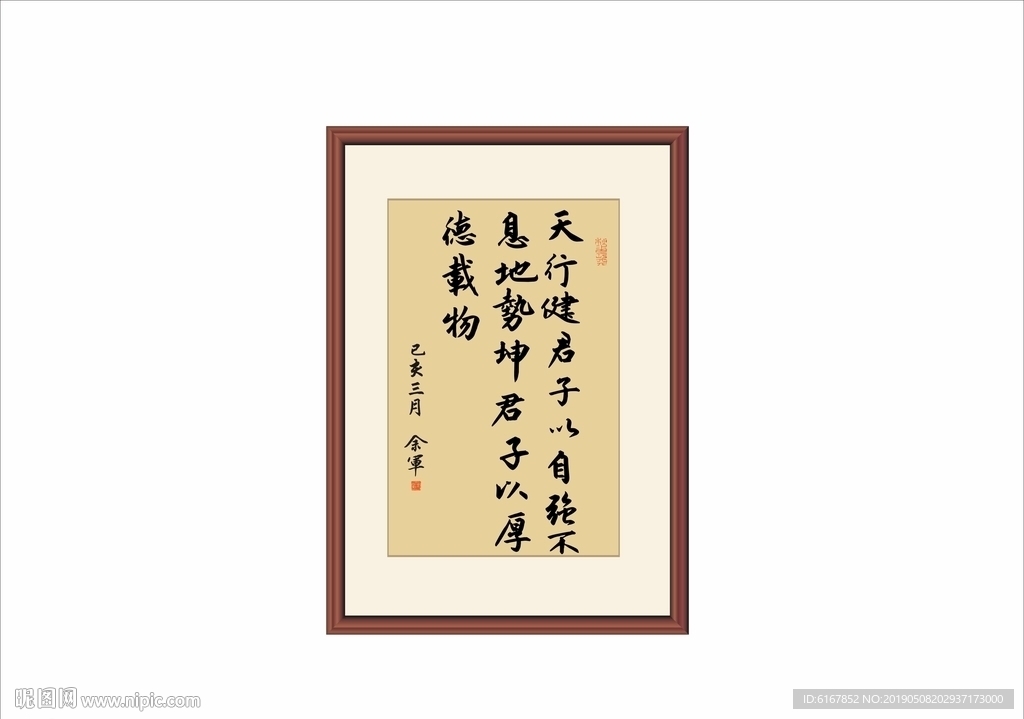 天行健君子以自强不
息地勢坤君子以厚
德載物
己亥三月 余軍
昵图网 www.nipic.com
ID:6167852 NO:20190508202937173000